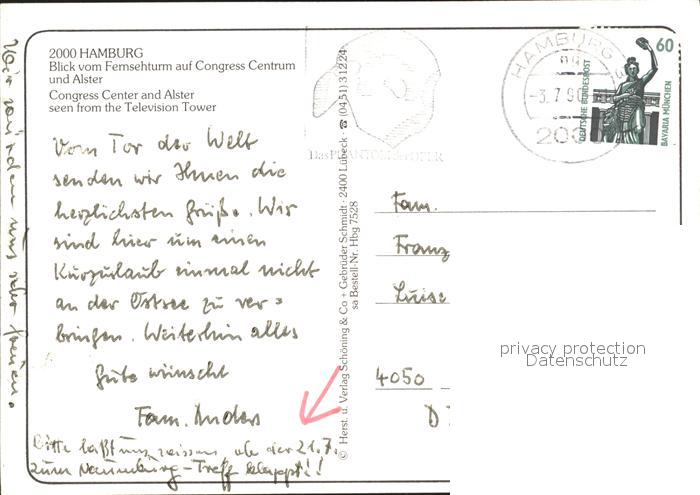 2000 HAMBURG
Blick vom Fernsehturm auf Congress Centrum
und Alster
Congress Center and Alster
seen from the Television Tower
Vom Tor der Welt
senden wir Ihnen die
herzlichsten Grüße. Wir
sind hier um einen
Kurzurlaub einmal nicht
an der Ostsee zu ver=
bringen. Weiterhin alles
Gute wünscht
Fam. Anders
Bitte laßt uns wissen, ob der 21.7.
zum Naumburg-Treff klappt!!
Wir würden uns sehr freuen.
© Herst. u. Verlag Schöning & Co + Gebrüder Schmidt · 2400 Lübeck · ☎ (0451) 31224
sa Bestell-Nr. Hbg 7528
Das PHANTOM der OPER
HAMBURG
-3.7.90
60
DEUTSCHE BUNDESPOST
BAVARIA MÜNCHEN
Fam.
Franz
Luise
4050
privacy protection
Datenschutz